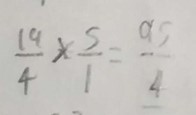 19/4 × 5/1 = 95/4